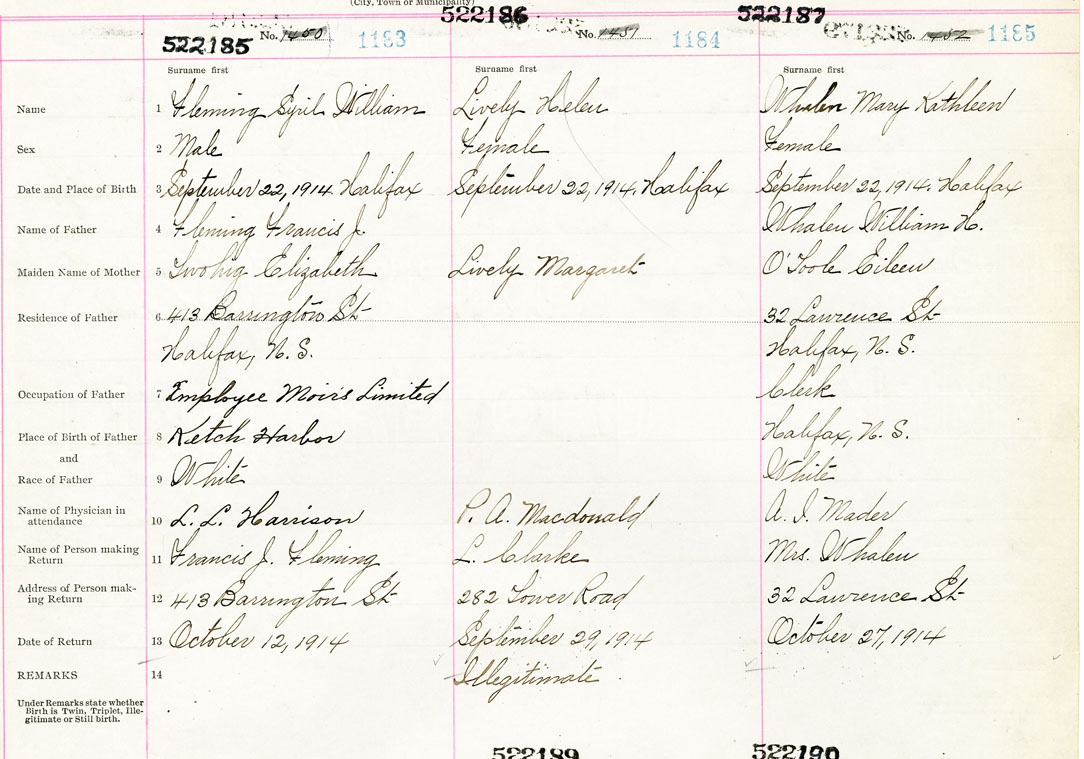 (City, Town or Municipality)
522185 No. 1450 1183
522186 No. 1451 1184
522187 No. 1452 1185
Surname first Surname first Surname first
Name 1 Fleming Cyril William Lively Helen Whalen Mary Kathleen
Sex 2 Male Female Female
Date and Place of Birth 3 September 22, 1914. Halifax September 22, 1914. Halifax September 22, 1914. Halifax
Name of Father 4 Fleming Francis J. Whalen William H.
Maiden Name of Mother 5 Twohig Elizabeth Lively Margaret O'Toole Eileen
Residence of Father 6 413 Barrington St 32 Lawrence St
Halifax, N. S. Halifax, N. S.
Occupation of Father 7 Employee Moirs Limited Clerk
Place of Birth of Father 8 Ketch Harbor Halifax, N. S.
and
Race of Father 9 White White
Name of Physician in
attendance 10 L. L. Harrison P. A. Macdonald A. I. Mader
Name of Person making
Return 11 Francis J. Fleming L. Clarke Mrs. Whalen
Address of Person mak-
ing Return 12 413 Barrington St 282 Tower Road 32 Lawrence St
Date of Return 13 October 12, 1914 September 29, 1914 October 27, 1914
REMARKS 14 Illegitimate
Under Remarks state whether
Birth is Twin, Triplet, Ille-
gitimate or Still birth.
522189 522190